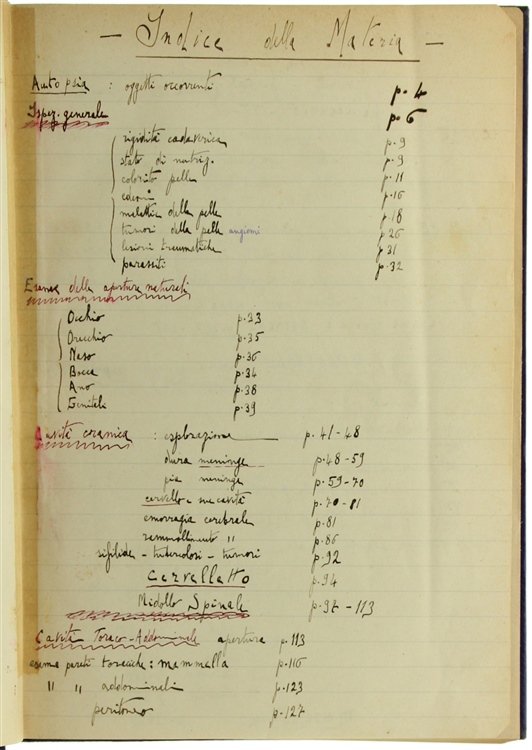 — Indice della Materia —
Autopsia : oggetti occorrenti p. 4
Ispez. generale p. 6
rigidità cadaverica p. 9
stato di nutriz. p. 9
colorito pelle p. 11
edemi p. 16
malattie della pelle p. 18
tumori della pelle angiomi p. 26
lesioni traumatiche p. 31
parassiti p. 32
Esame delle aperture naturali
Occhio p. 33
Orecchio p. 35
Naso p. 36
Bocca p. 34
Ano p. 38
Genitali p. 39
Cavità cranica : esplorazione p. 41-48
dura meninge p. 48-59
pia meninge p. 59-70
cervello e sue cavità p. 70-81
emorragia cerebrale p. 81
rammollimento " p. 86
sifilide - tubercolosi - tumori p. 92
Cervelletto p. 94
Midollo Spinale p. 97-113
Cavità Toraco-Addominale apertura p. 113
esame pareti toraciche: mammella p. 116
" " addominali p. 123
peritoneo p. 127